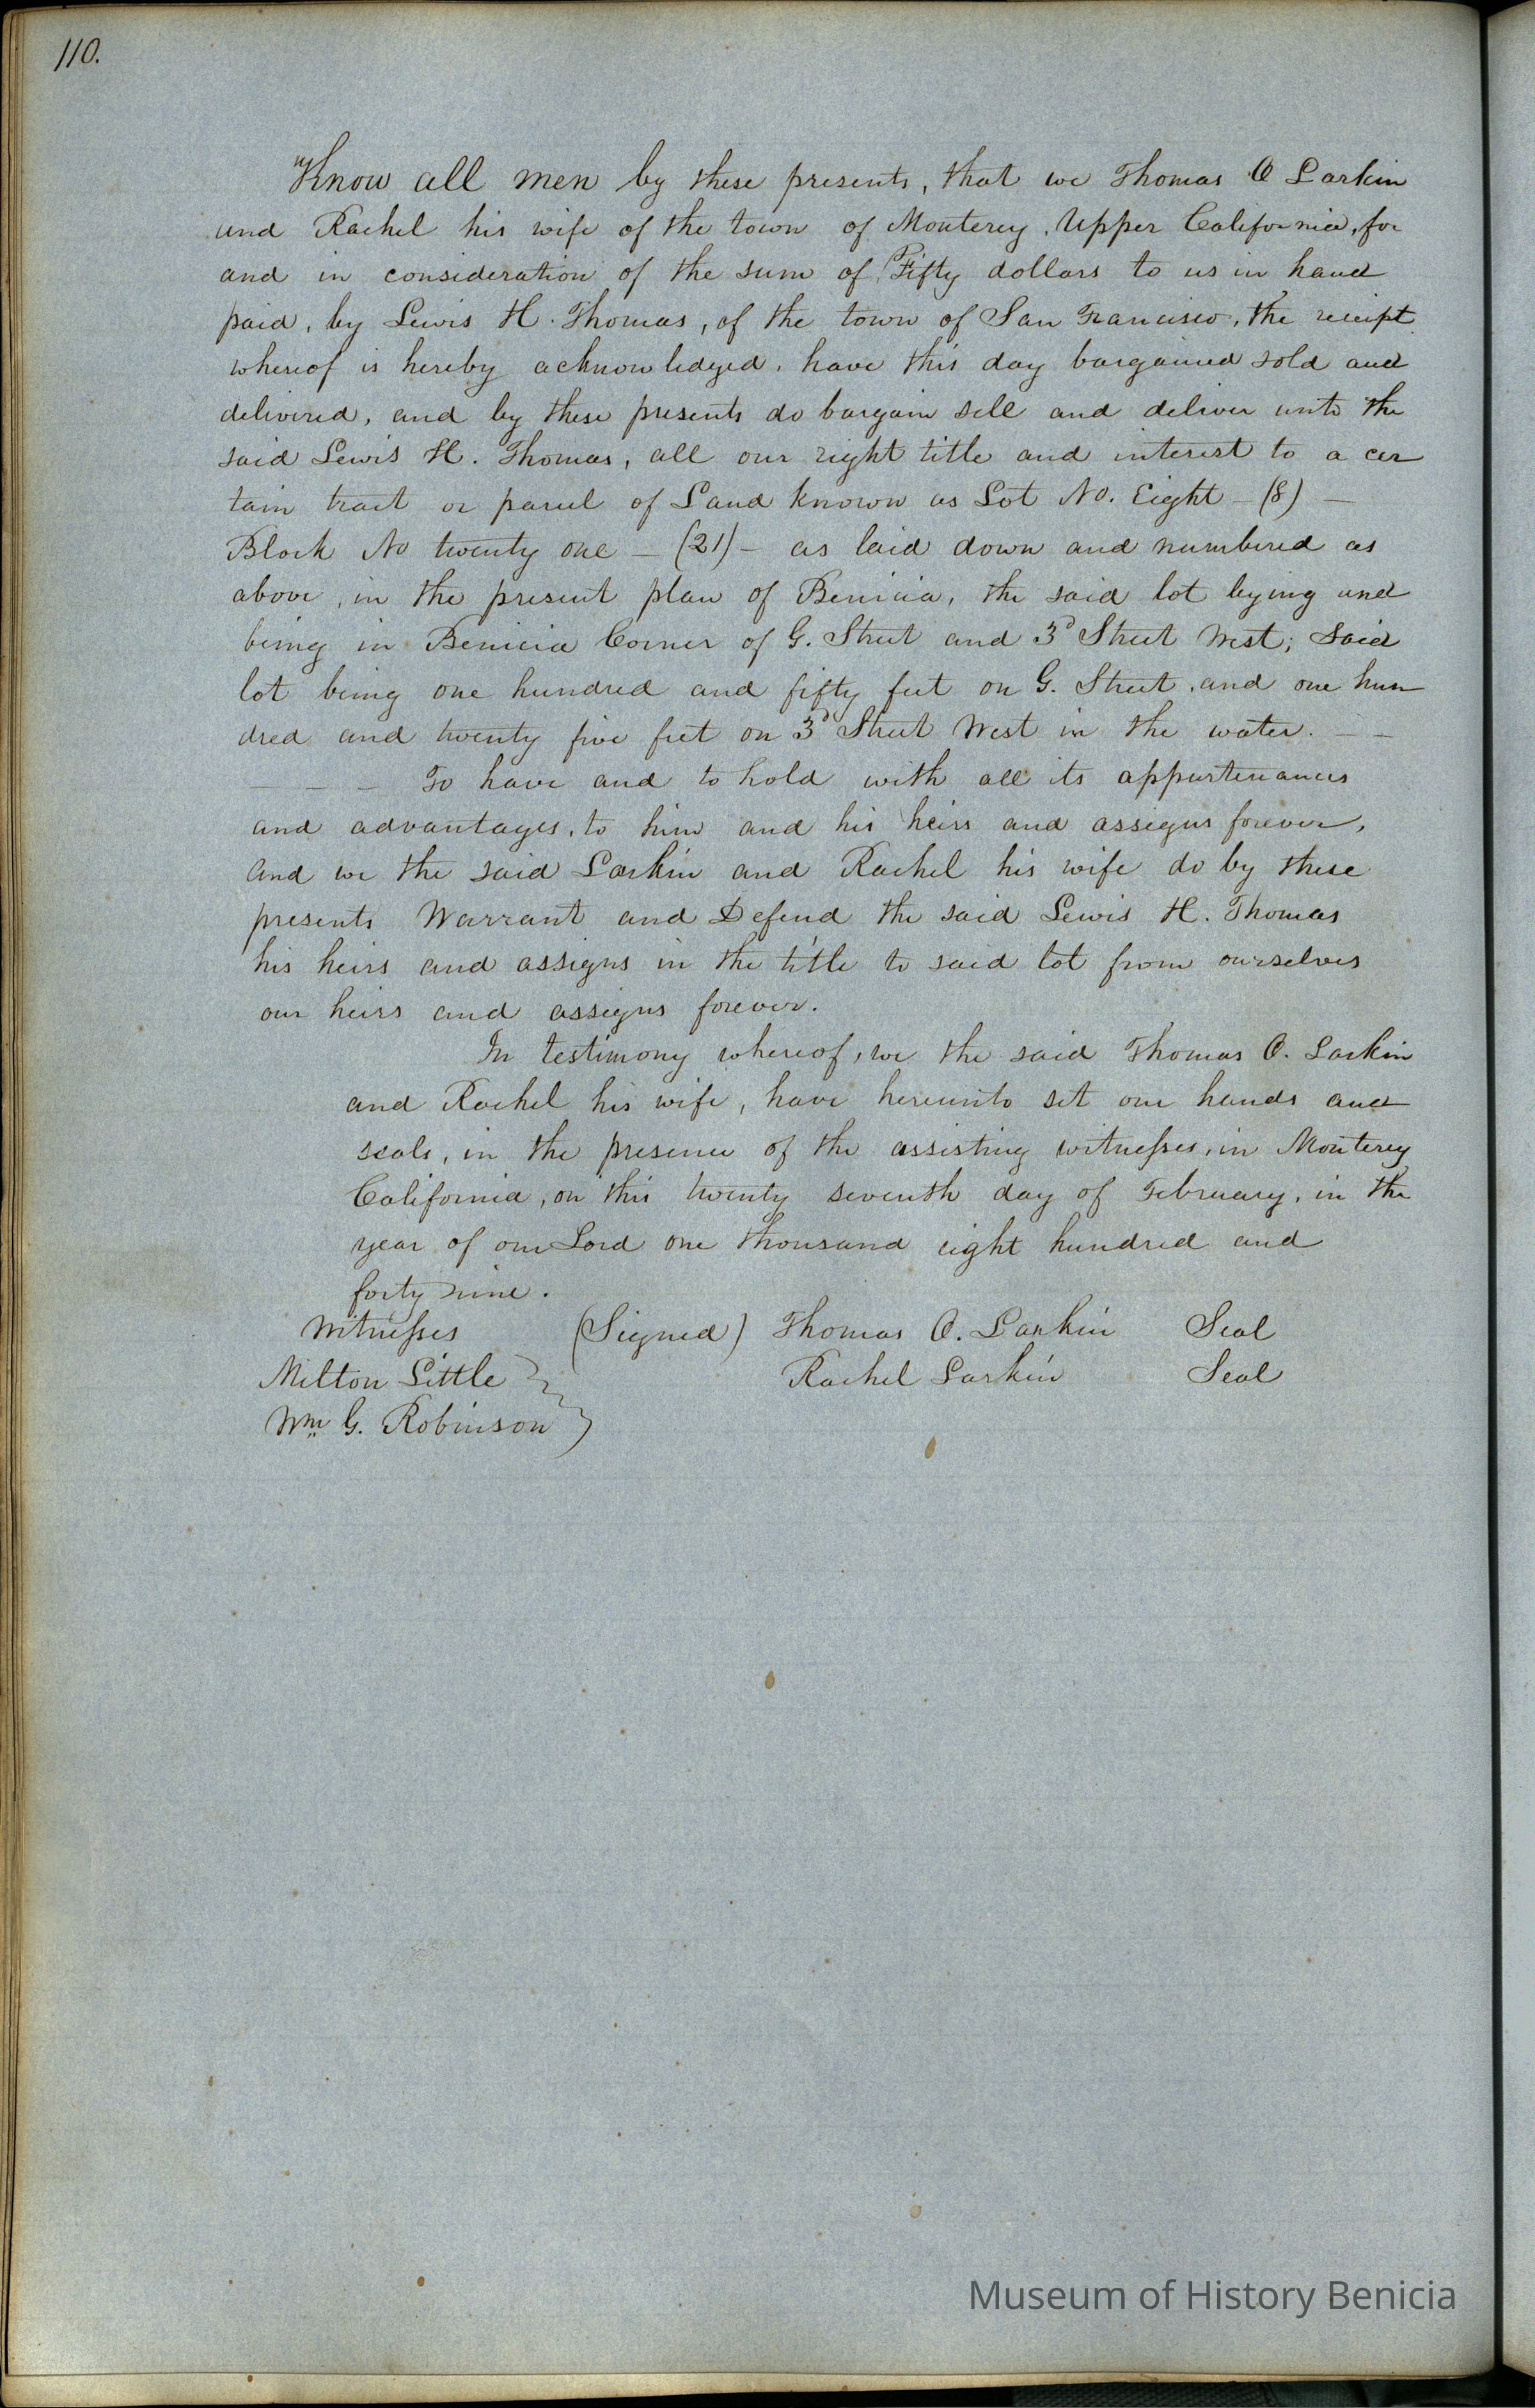 110.
Know all men by these presents, that we Thomas O Larkin
and Rachel his wife of the town of Monterey, Upper California, for
and in consideration of the sum of Fifty dollars to us in hand
paid, by Lewis H. Thomas, of the town of San Francisco, the receipt
whereof is hereby acknowledged, have this day bargained sold and
delivered, and by these presents do bargain sell and deliver unto the
said Lewis H. Thomas, all our right title and interest to a cer
tain tract or parcel of Land known as Lot No. Eight - (8) -
Block No twenty one - (21) - as laid down and numbered as
above, in the present plan of Benicia, the said lot lying and
being in Benicia Corner of G. Street and 3d Street West; Said
lot being one hundred and fifty feet on G. Street, and one hun
dred and twenty five feet on 3d Street West in the water. - -
- - - To have and to hold with all its appurtenances
and advantages, to him and his heirs and assigns forever,
and we the said Larkin and Rachel his wife do by these
presents Warrant and Defend the said Lewis H. Thomas
his heirs and assigns in the title to said lot from ourselves
our heirs and assigns forever.
In testimony whereof, we the said Thomas O. Larkin
and Rachel his wife, have hereunto set our hands and
seals, in the presence of the assisting witnesses, in Monterey
California, on this twenty seventh day of February, in the
year of our Lord one thousand eight hundred and
forty nine.
Witnesses (Signed) Thomas O. Larkin Seal
Milton Little Rachel Larkin Seal
Wm G. Robinson
Museum of History Benicia